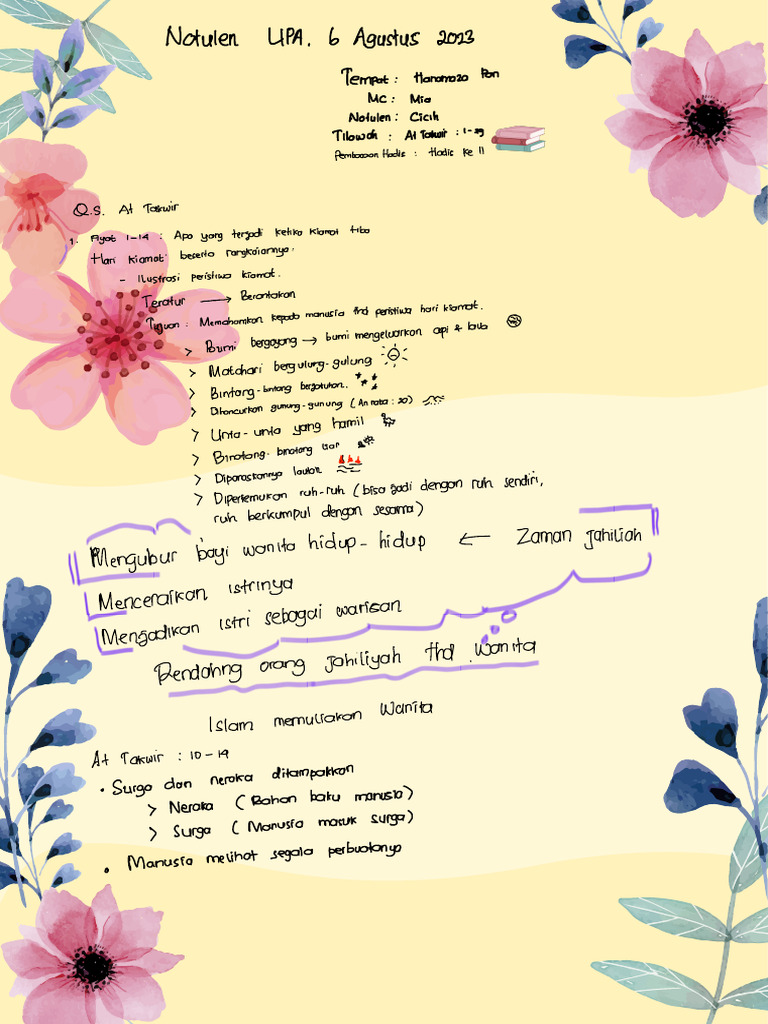 Notulen UPA. 6 Agustus 2023
Tempat : Hanamasa Pon
MC : Mia
Notulen : Cicih
Tilawah : At Takwir : 1-29
Pembacaan Hadis : Hadis ke 11
Q.S. At Takwir
1. Ayat 1-14 : Apa yang terjadi ketika kiamat tiba
Hari kiamat beserta rangkaiannya.
- Ilustrasi peristiwa kiamat.
Teratur → Berantakan
Tujuan : Memahamkan kepada manusia thd peristiwa hari kiamat.
> Bumi bergoyang → bumi mengeluarkan api & lava
> Matahari bergulung-gulung
> Bintang-bintang berjatuhan..
> Dihancurkan gunung-gunung (An naba : 20)
> Unta-unta yang hamil
> Binatang-binatang liar
> Dipanaskannya lautan
> Dipertemukan ruh-ruh (bisa jadi dengan ruh sendiri,
ruh berkumpul dengan sesama)
Mengubur bayi wanita hidup-hidup ← Zaman jahiliah
Menceraikan istrinya
Menjadikan istri sebagai warisan
Rendahng orang jahiliyah thd wanita
Islam memuliakan wanita
At Takwir : 10-14
• Surga dan neraka ditampakkan
> Neraka (Bahan baku manusia)
> Surga (Manusia masuk surga)
• Manusia melihat segala perbuatanya